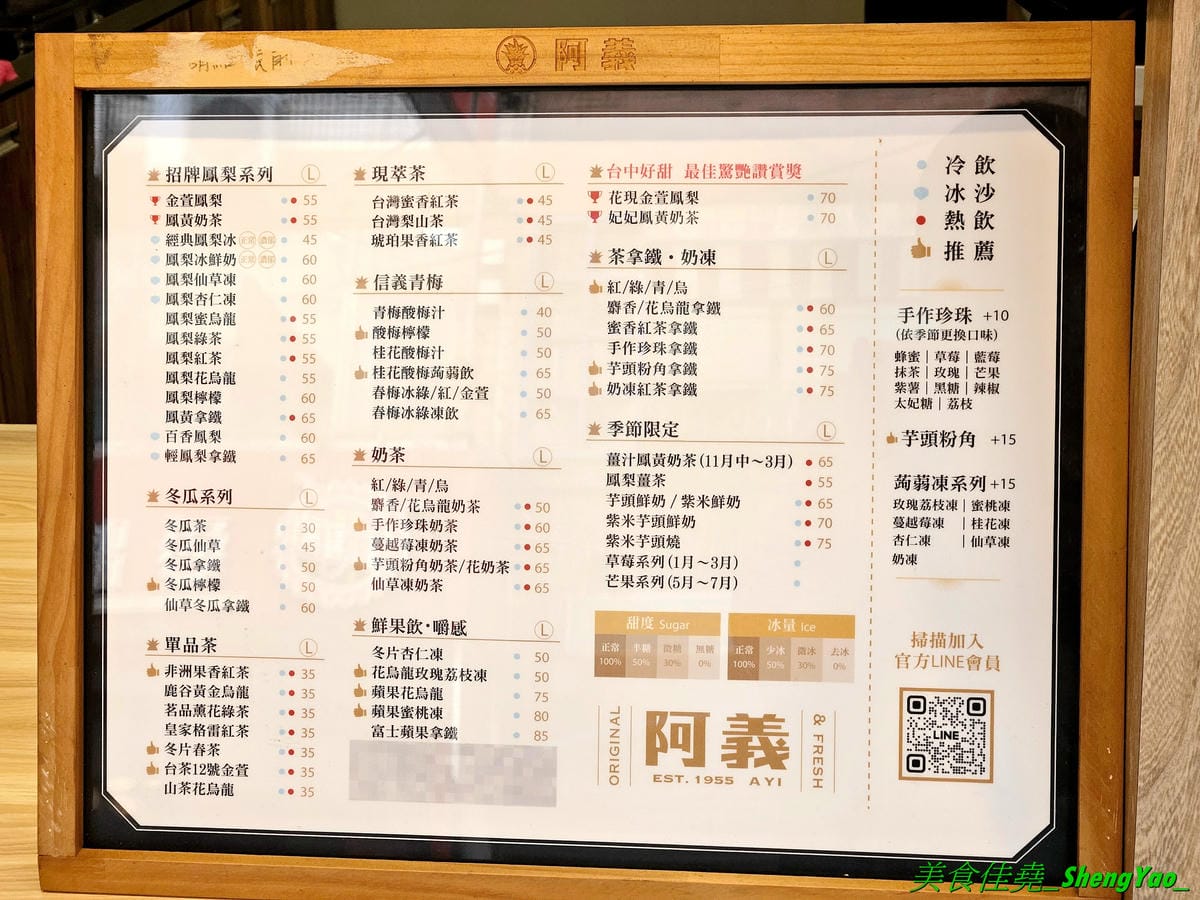 阿義
招牌鳳梨系列 L
金萱鳳梨 55
鳳黃奶茶 55
經典鳳梨冰 正常 濃郁 45
鳳梨冰鮮奶 正常 濃郁 60
鳳梨仙草凍 60
鳳梨杏仁凍 60
鳳梨蜜烏龍 55
鳳梨綠茶 55
鳳梨紅茶 55
鳳梨花烏龍 55
鳳梨檸檬 60
鳳黃拿鐵 65
百香鳳梨 60
輕鳳梨拿鐵 65
冬瓜系列 L
冬瓜茶 30
冬瓜仙草 45
冬瓜拿鐵 50
冬瓜檸檬 50
仙草冬瓜拿鐵 60
單品茶 L
非洲果香紅茶 35
鹿谷黃金烏龍 35
茗品薰花綠茶 35
皇家格雷紅茶 35
冬片春茶 35
台茶12號金萱 35
山茶花烏龍 35
現萃茶 L
台灣蜜香紅茶 45
台灣梨山茶 45
琥珀果香紅茶 45
信義青梅 L
青梅酸梅汁 40
酸梅檸檬 50
桂花酸梅汁 50
桂花酸梅蒟蒻飲 65
春梅冰綠/紅/金萱 50
春梅冰綠凍飲 65
奶茶 L
紅/綠/青/烏
麝香/花烏龍奶茶 50
手作珍珠奶茶 60
蔓越莓凍奶茶 65
芋頭粉角奶茶/花奶茶 65
仙草凍奶茶 65
鮮果飲·嚼感 L
冬片杏仁凍 50
花烏龍玫瑰荔枝凍 50
蘋果花烏龍 75
蘋果蜜桃凍 80
富士蘋果拿鐵 85
台中好甜 最佳驚艷讚賞獎
花現金萱鳳梨 70
妃妃鳳黃奶茶 70
茶拿鐵·奶凍 L
紅/綠/青/烏
麝香/花烏龍拿鐵 60
蜜香紅茶拿鐵 65
手作珍珠拿鐵 70
芋頭粉角拿鐵 75
奶凍紅茶拿鐵 75
季節限定 L
薑汁鳳黃奶茶(11月中～3月) 65
鳳梨薑茶 55
芋頭鮮奶/紫米鮮奶 65
紫米芋頭鮮奶 70
紫米芋頭燒 75
草莓系列(1月～3月)
芒果系列(5月～7月)
甜度 Sugar
正常 半糖 微糖 無糖
100% 50% 30% 0%
冰量 Ice
正常 少冰 微冰 去冰
100% 50% 30% 0%
ORIGINAL
阿義
EST. 1955 AYI
& FRESH
冷飲
冰沙
熱飲
推薦
手作珍珠 +10
(依季節更換口味)
蜂蜜｜草莓｜藍莓
抹茶｜玫瑰｜芒果
紫薯｜黑糖｜辣椒
太妃糖｜荔枝
芋頭粉角 +15
蒟蒻凍系列 +15
玫瑰荔枝凍｜蜜桃凍
蔓越莓凍｜桂花凍
杏仁凍｜仙草凍
奶凍
掃描加入
官方LINE會員
LINE
美食佳堯_ShengYao_